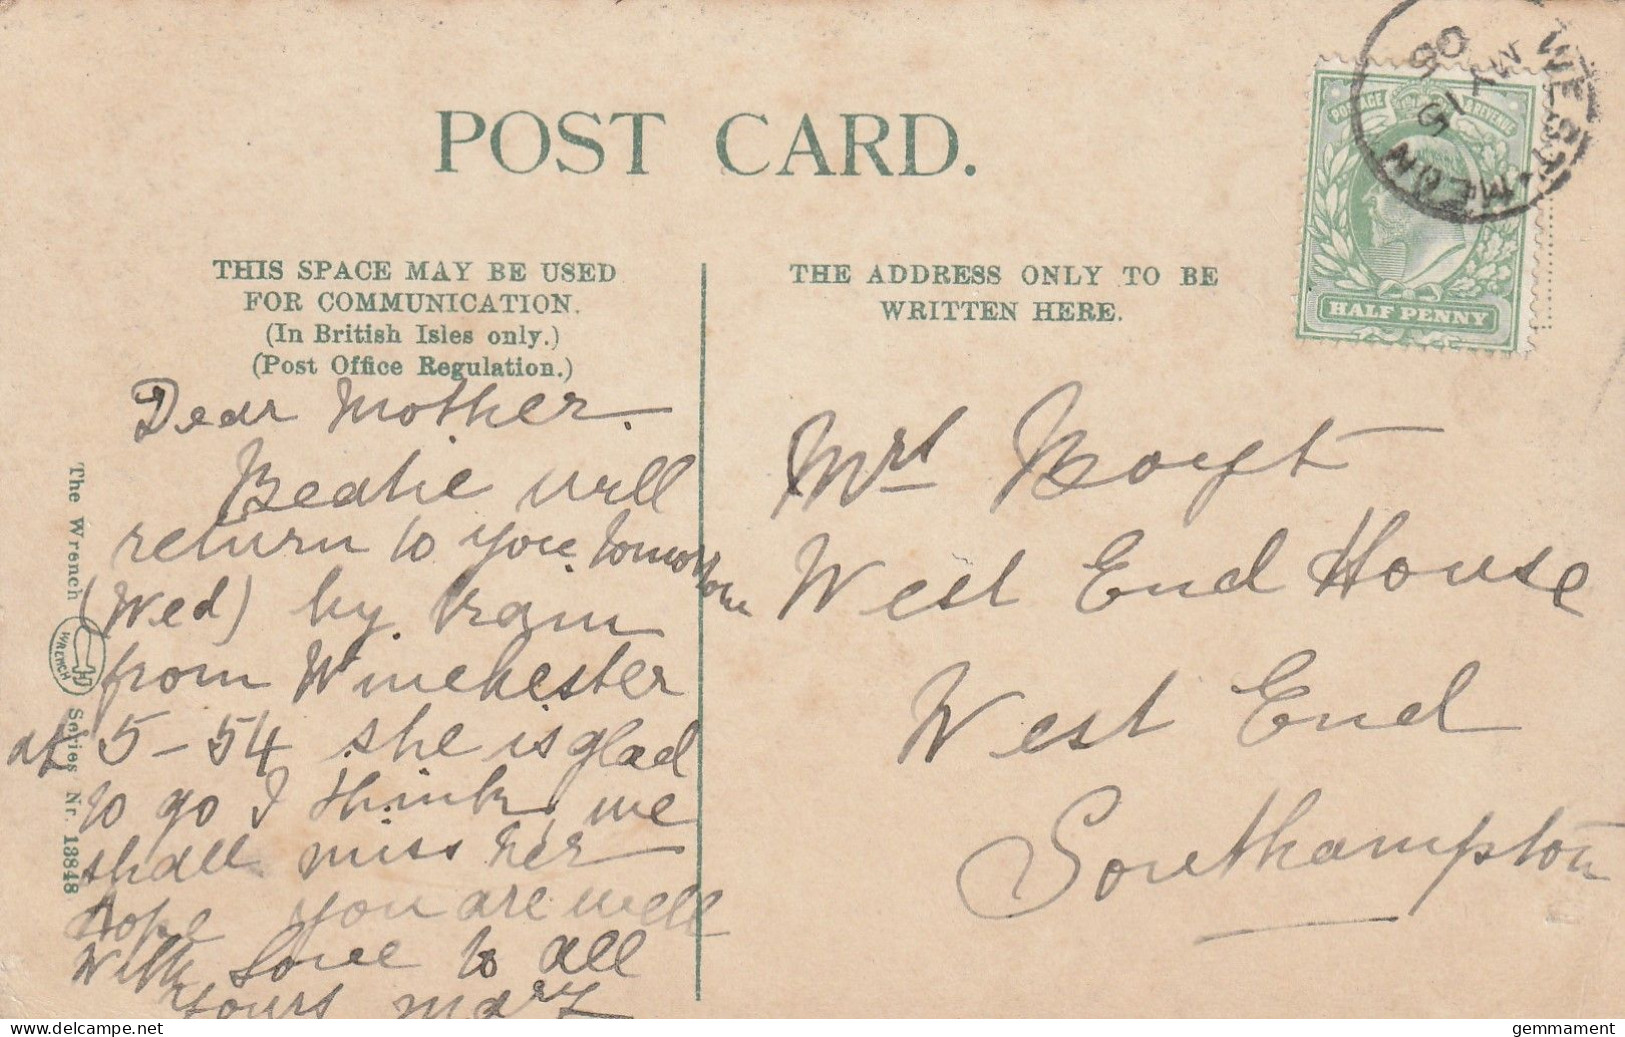 POST CARD.
THIS SPACE MAY BE USED
FOR COMMUNICATION.
(In British Isles only.)
(Post Office Regulation.)
THE ADDRESS ONLY TO BE
WRITTEN HERE.
POSTAGE REVENUE
HALF PENNY
WEST MEON
MY 15
Dear Mother.
Beatie will
return to you tomorrow
(Wed) by train
from Winchester
at 5-54 she is glad
to go I think, we
shall miss her
Hope you are well
With Love to all
Yours Mary
Mrs Hoyt
West End House
West End
Southampton
The Wrench Series Nr. 18848
WRENCH
delcampe.net
gemmament